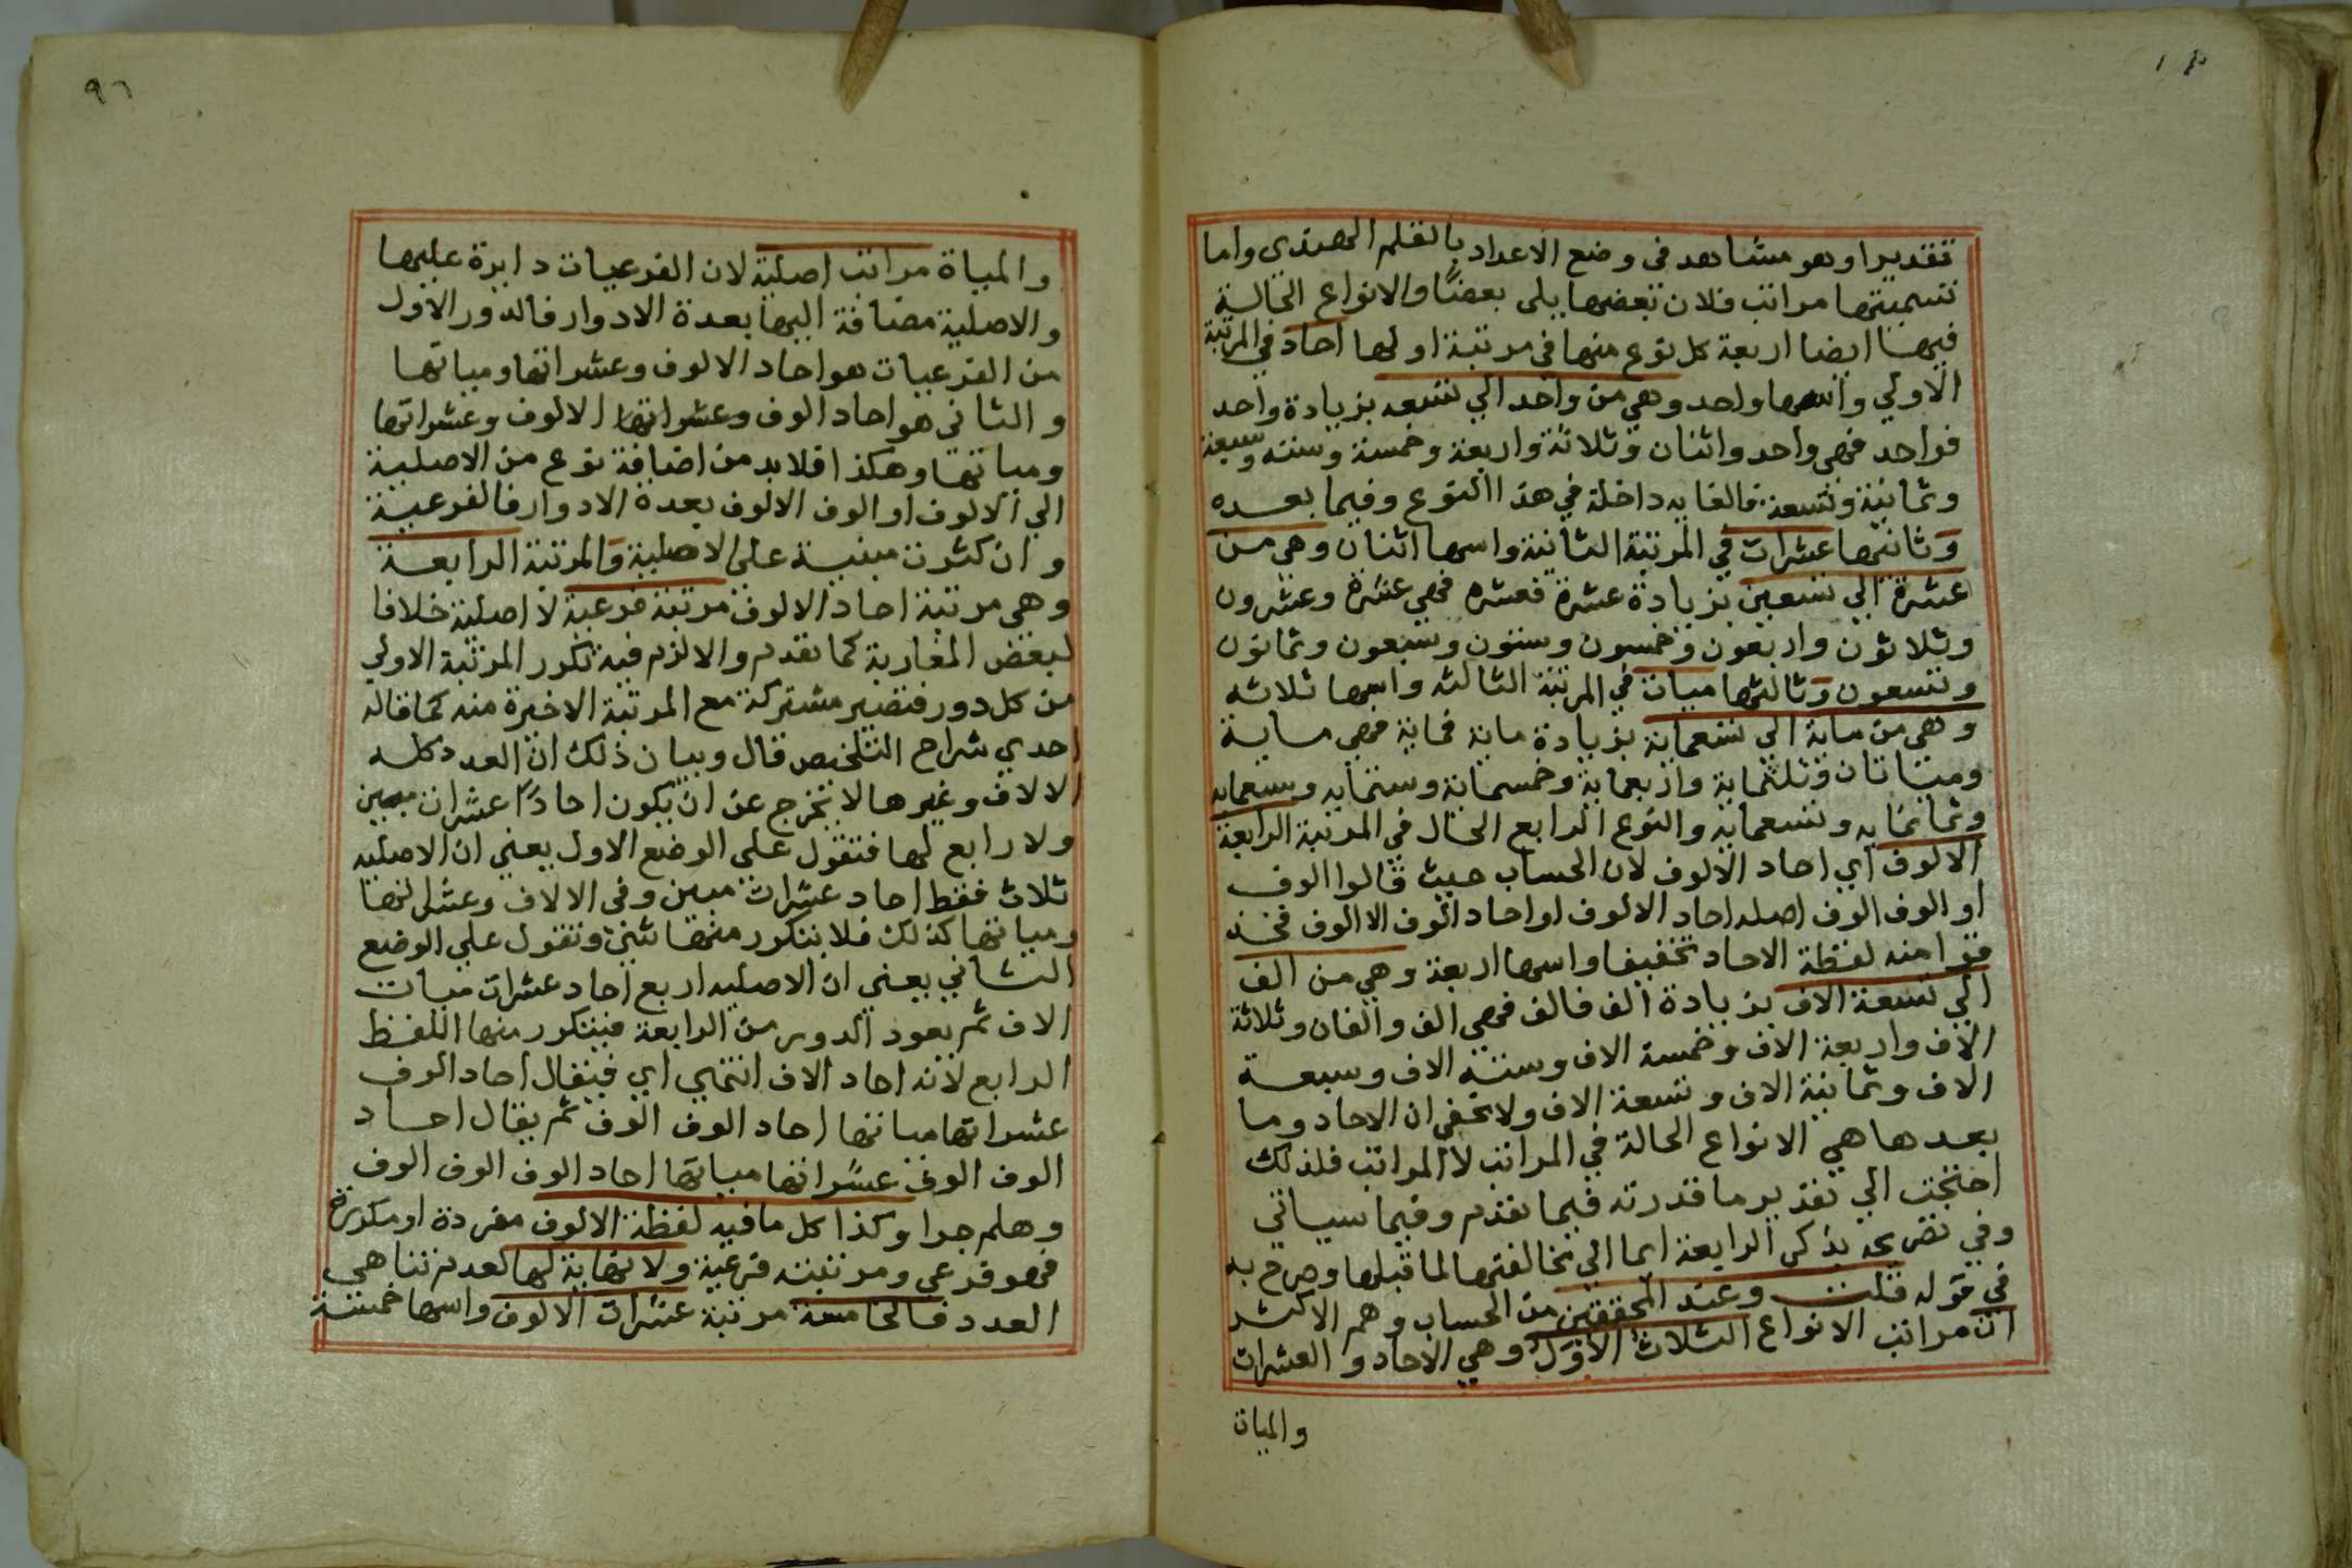 تقديرا وهو مشاهد في وضع الاعداد بالقلم الهندي واما
تسميتها مراتب فلان بعضها يلى بعضًا والانواع الحالية
فيها ايضا اربعة كل نوع منها في مرتبة اولها احاد في المرتبة
الاولي واسمها واحد وهي من واحد الي تسعه بزيادة واحد
فواحد فهي واحد واثنان وثلاثة واربعة وخمسة وسته وسبعة
وثمانية وتسعة فالغايه داخلة في هذا النوع وفيما بعده
وثانيها عشرات في المرتبة الثانية واسمها اثنان وهي من
عشرة الي تسعين بزيادة عشرة فعشره فهي عشرة وعشرون
وثلاثون واربعون وخمسون وستون وسبعون وثمانون
وتسعون وثالثها ميات في المرتبة الثالثه واسمها ثلاثه
وهي من ماية الي تسعماية بزيادة ماية فماية فهي ماية
وميتاتان وثلثماية واربعماية وخمسماية وستمايه وسبعمايه
وثمانمايه وتسعمايه والنوع الرابع الحال في المرتبة الرابعة
الالوف اي احاد الالوف لان الحساب حيث قالوا الوف
او الوف الوف اصله احاد الالوف او احاد الوف الالوف فحذ
فوا منه لفظة الاحاد تخفيفا واسمها اربعة وهي من الف
الي تسعة الاف بزيادة الف فالف فهي الف والفان وثلاثة
الاف واربعة الاف وخمسة الاف وستة الاف وسبعة
الاف وثمانية الاف وتسعة الاف ولا يخفي ان الاحاد وما
بعدها هي الانواع الحالة في المراتب لا المراتب فلذلك
احتجت الي تقدير ما قدرته فيما تقدم وفيما سياتي
وفي تصريحه بذكر الرابعة ايما الي مخالفتها لما قبلها وصرح به
في قوله قلت وعند المحققين من الحساب وهم الاكثر
ان مراتب الانواع الثلاث الاوَل وهي الاحاد والعشرات
والمياة
٩٦
والمياة مراتب اصلية لان الفرعيات دايرة عليها
والاصلية مضافة اليها بعدة الادوار فالدور الاول
من الفرعيات هو احاد الالوف وعشراتها ومياتها
والثاني هو احاد الوف وعشراتها الالوف وعشراتها
ومياتها وهكذا فلابد من اضافة نوع من الاصلية
الي الالوف او الوف الالوف بعدة الادوار فالفرعية
وان كثرت مبنية علي الاصلية والمرتبة الرابعة
وهي مرتبة احاد الالوف مرتبة فرعية لا اصلية خلافا
لبعض المغاربة كما تقدم والا لزم فيه تكرر المرتبة الاولي
من كل دور فتصير مشتركة مع المرتبة الاخيرة منه كما قاله
احدي شراح التلخيص قال وبيان ذلك ان العدد كله
الالاف وغيرها لا يخرج عن ان يكون احادًا عشرات ميين
ولا رابع لها فتقول علي الوضع الاول يعني ان الاصليه
ثلاث فقط احاد عشرات ميين وفي الالاف وعشراتها
ومياتها كذلك فلا يتكرر منها شئ وتقول علي الوضع
الثاني يعني ان الاصليه اربع احاد عشرات ميات
الاف ثم يعود الدور من الرابعة فيتكرر منها اللفظ
الرابع لانه احاد الاف انتهي اي فيقال احاد الوف
عشراتها مياتها احاد الوف الوف ثم يقال احاد
الوف الوف عشراتها مياتها احاد الوف الوف الوف
وهلم جرا وكذا كل ما فيه لفظة الالوف مفردة او مكررة
فهو فرعي ومرتبته فرعية ولا نهاية لها لعدم تناهي
العدد فالخامسة مرتبة عشرات الالوف واسمها خمسة